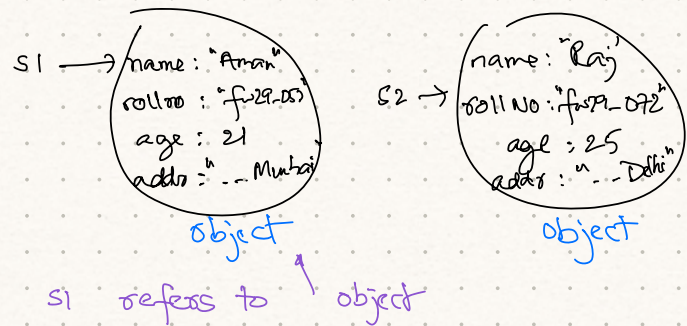 S1 → name: "Aman"
rollno: "fw29_053"
age: 21
addr: "---Mumbai"
object
S2 → name: "Raj"
roll No: "fw29_072"
age: 25
addr: "---Delhi"
object
S1 refers to object